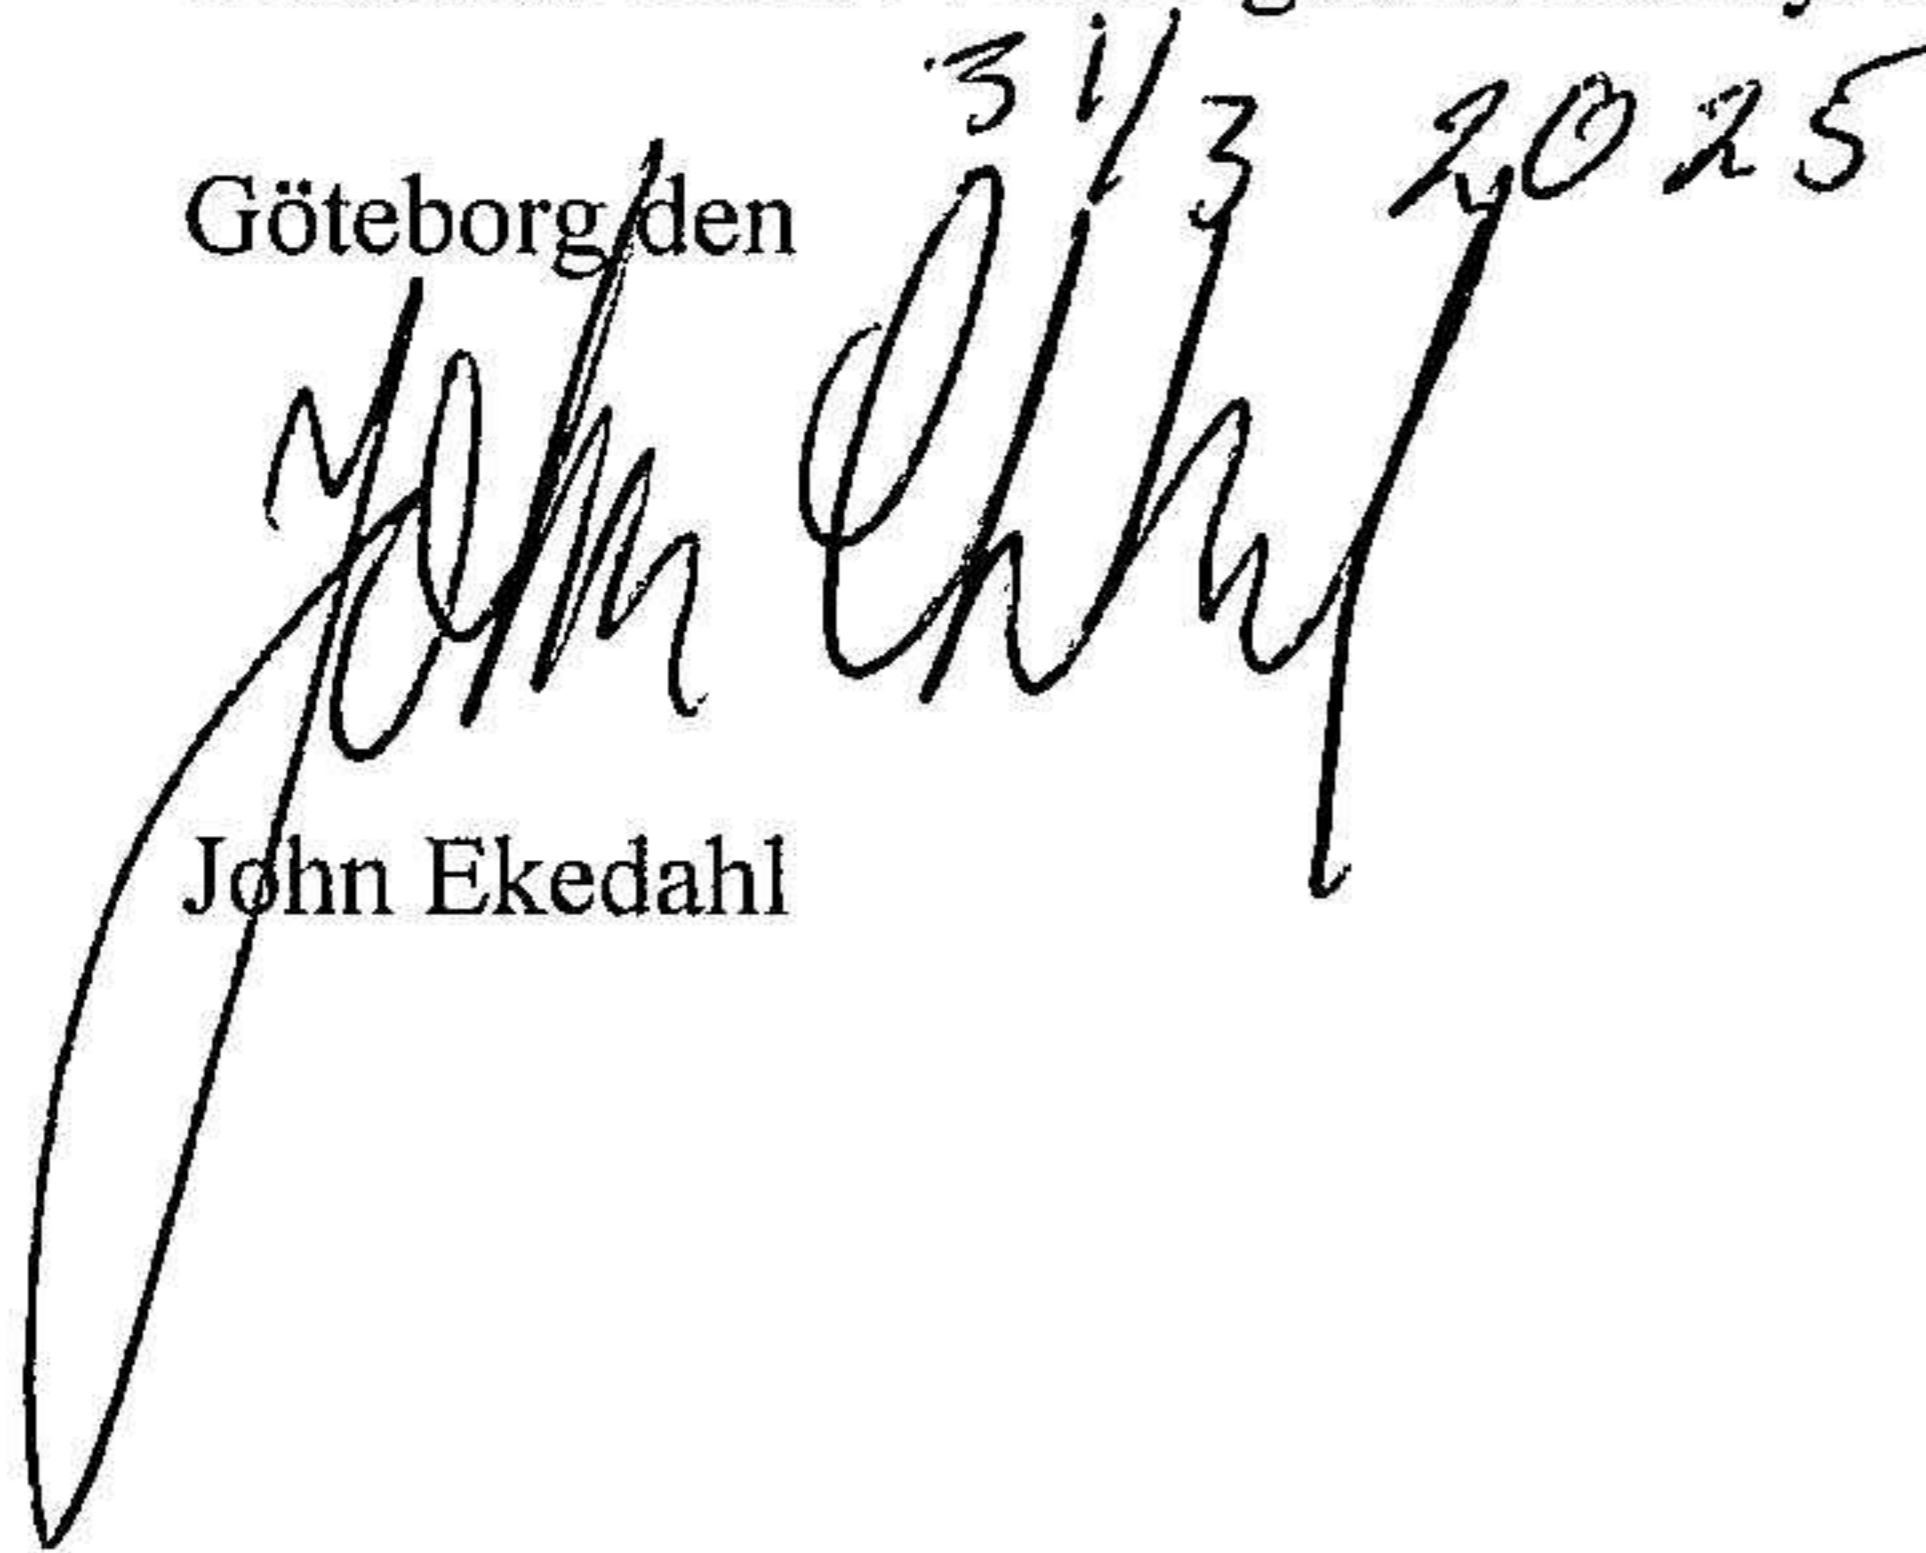 Göteborg den 31/3 2025
John Ekedahl
John Ekedahl